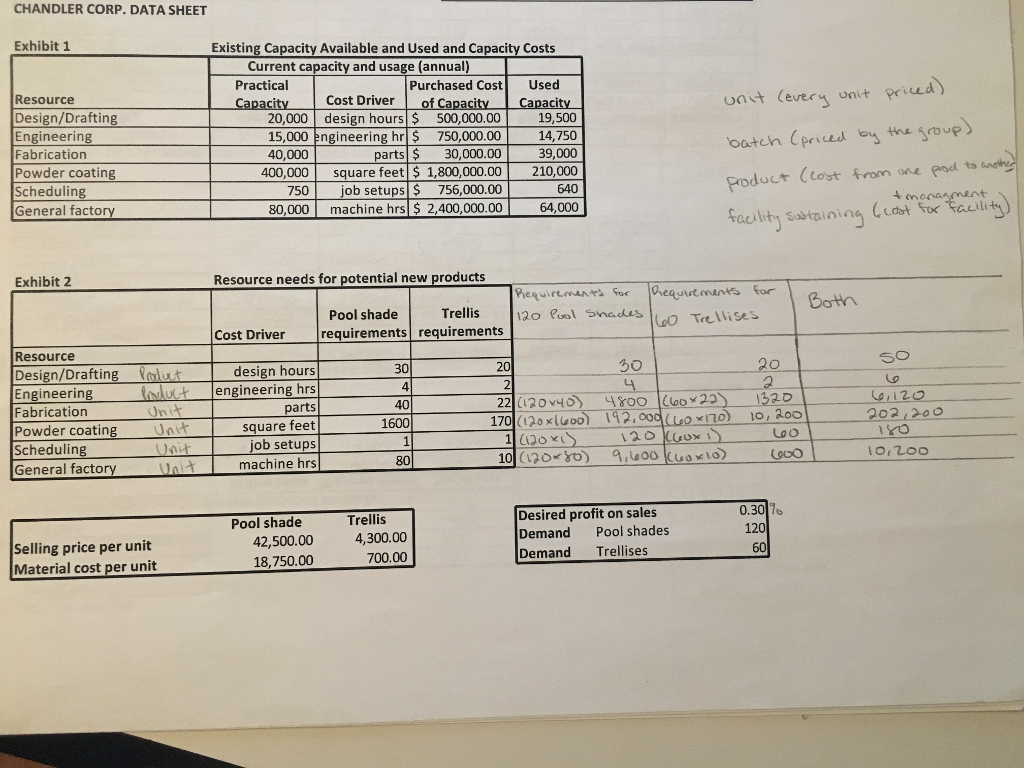 CHANDLER CORP. DATA SHEET
Exhibit 1 Existing Capacity Available and Used and Capacity Costs
Current capacity and usage (annual)
Resource Practical Capacity Cost Driver Purchased Cost of Capacity Used Capacity
Design/Drafting 20,000 design hours $ 500,000.00 19,500
Engineering 15,000 engineering hr $ 750,000.00 14,750
Fabrication 40,000 parts $ 30,000.00 39,000
Powder coating 400,000 square feet $ 1,800,000.00 210,000
Scheduling 750 job setups $ 756,000.00 640
General factory 80,000 machine hrs $ 2,400,000.00 64,000
unit (every unit priced)
batch (priced by the group)
product (cost from one prod to another
+ managment
facility sustaining (cost for facility)
Exhibit 2 Resource needs for potential new products
Cost Driver Pool shade requirements Trellis requirements Requirements for 120 Pool Shades Requirements for 60 Trellises Both
Resource
Design/Drafting Product design hours 30 20 30 20 50
Engineering Product engineering hrs 4 2 4 2 6
Fabrication Unit parts 40 22 (120x40) 4800 (60x22) 1320 6,120
Powder coating Unit square feet 1600 170 (120x1600) 192,000 (60x170) 10,200 202,200
Scheduling Unit job setups 1 1 (120x1) 120 (60x1) 60 180
General factory Unit machine hrs 80 10 (120x80) 9,600 (60x10) 600 10,200
Pool shade Trellis
Selling price per unit 42,500.00 4,300.00
Material cost per unit 18,750.00 700.00
Desired profit on sales 0.30 %
Demand Pool shades 120
Demand Trellises 60